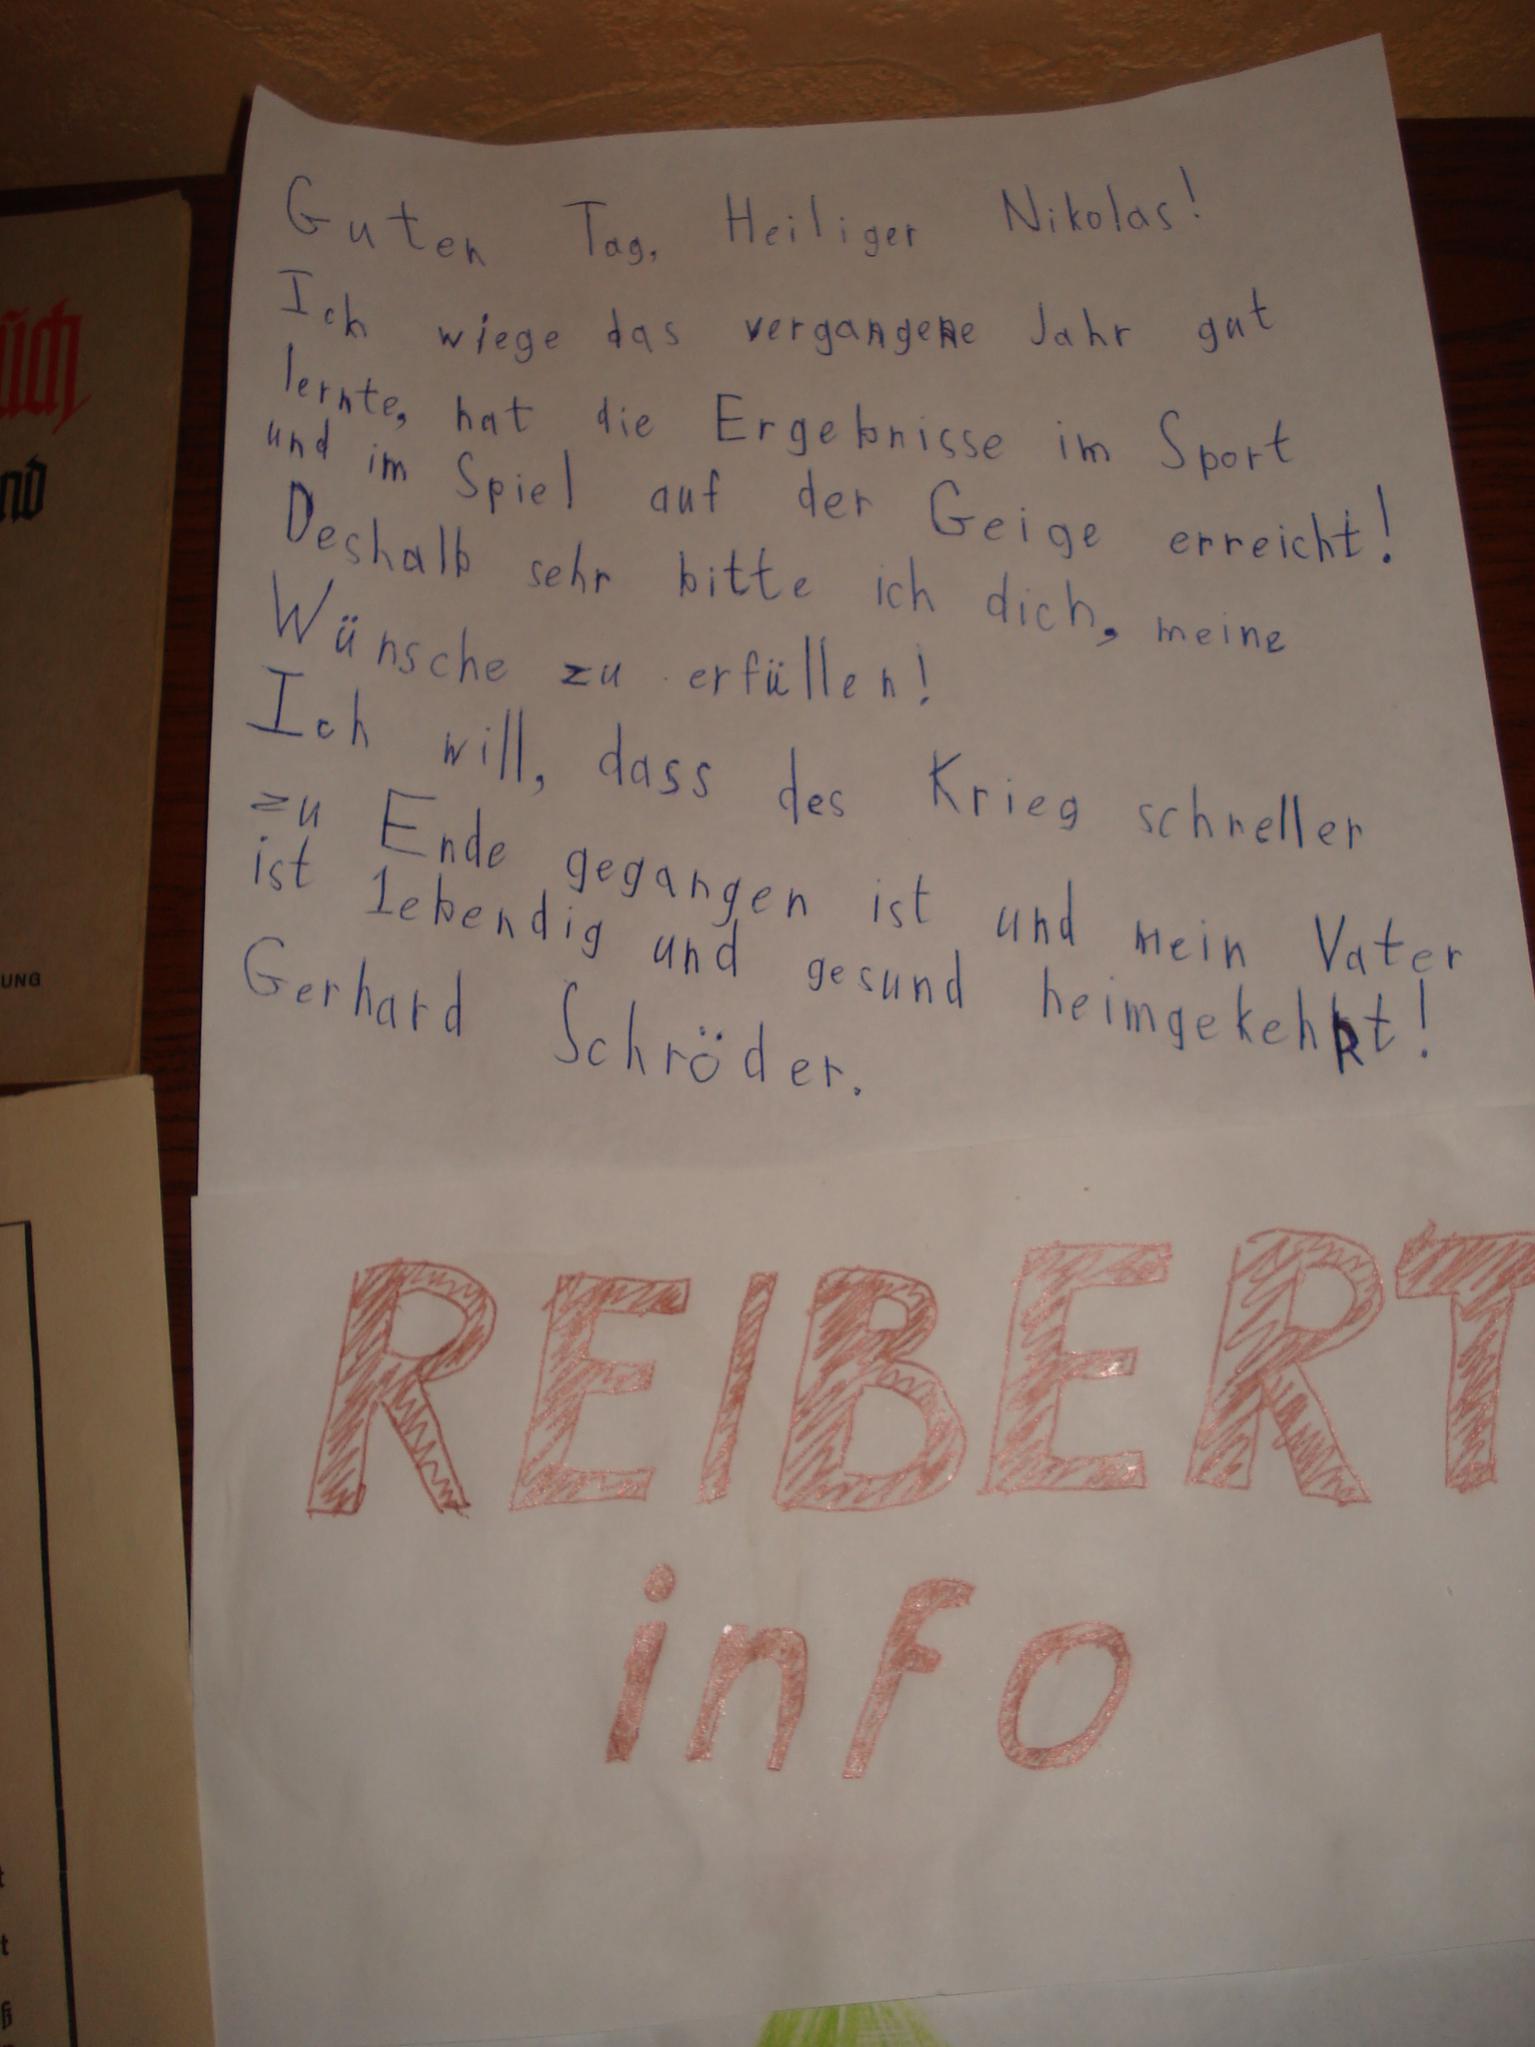 Guten Tag, Heiliger Nikolas!
Ich wiege das vergangene Jahr gut
lernte, hat die Ergebnisse im Sport
und im Spiel auf der Geige erreicht!
Deshalb sehr bitte ich dich, meine
Wünsche zu erfüllen!
Ich will, dass des Krieg schneller
zu Ende gegangen ist und mein Vater
ist lebendig und gesund heimgekehrt!
Gerhard Schröder.
REIBERT
info
UNG